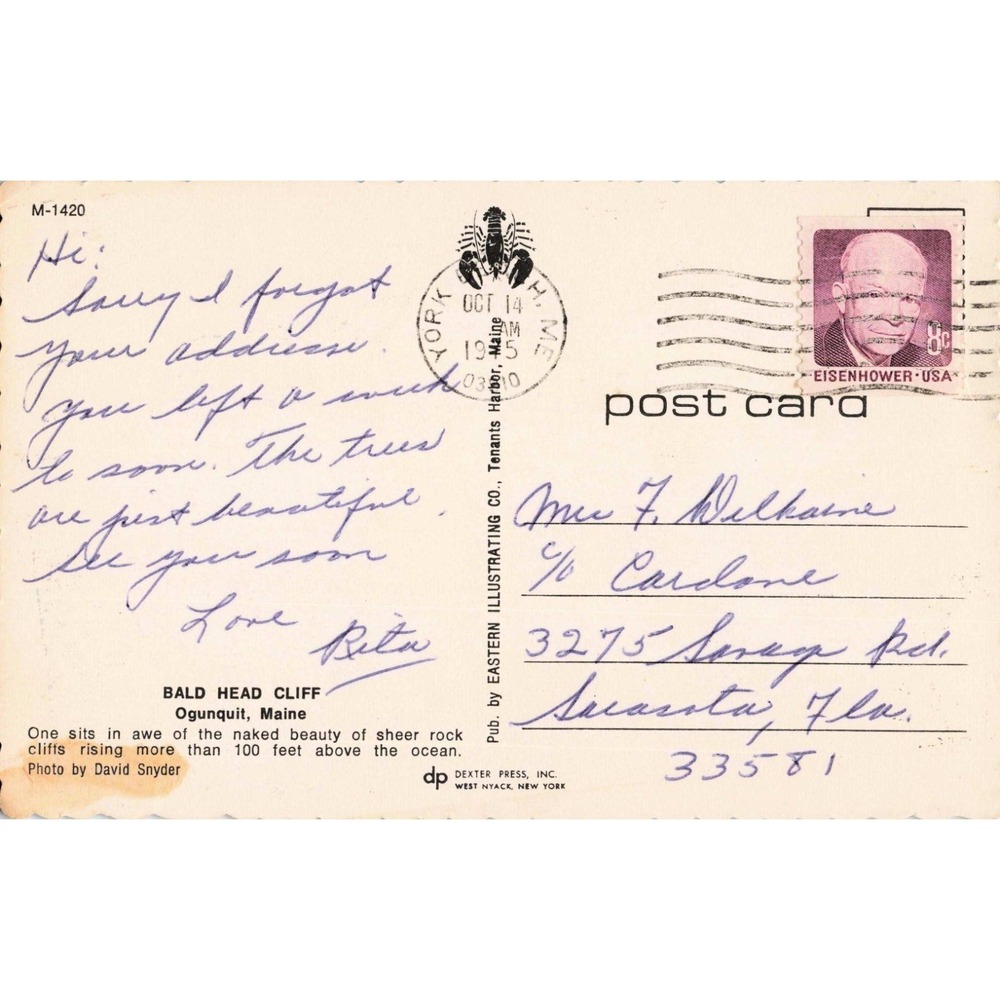 M-1420
Hi:
Sorry I forgot
your address.
You left a week
to soon. The trees
are just beautiful.
See you soon
Love
Rita
BALD HEAD CLIFF
Ogunquit, Maine
One sits in awe of the naked beauty of sheer rock
cliffs rising more than 100 feet above the ocean.
Photo by David Snyder
dp DEXTER PRESS, INC.
WEST NYACK, NEW YORK
Pub. by EASTERN ILLUSTRATING CO., Tenants Harbor, Maine
YORK H. ME
OCT 14
AM
EISENHOWER·USA
8c
post card
F.
c/o Cardone
3275 Savage Rd.
Sarasota, Fla.
33581